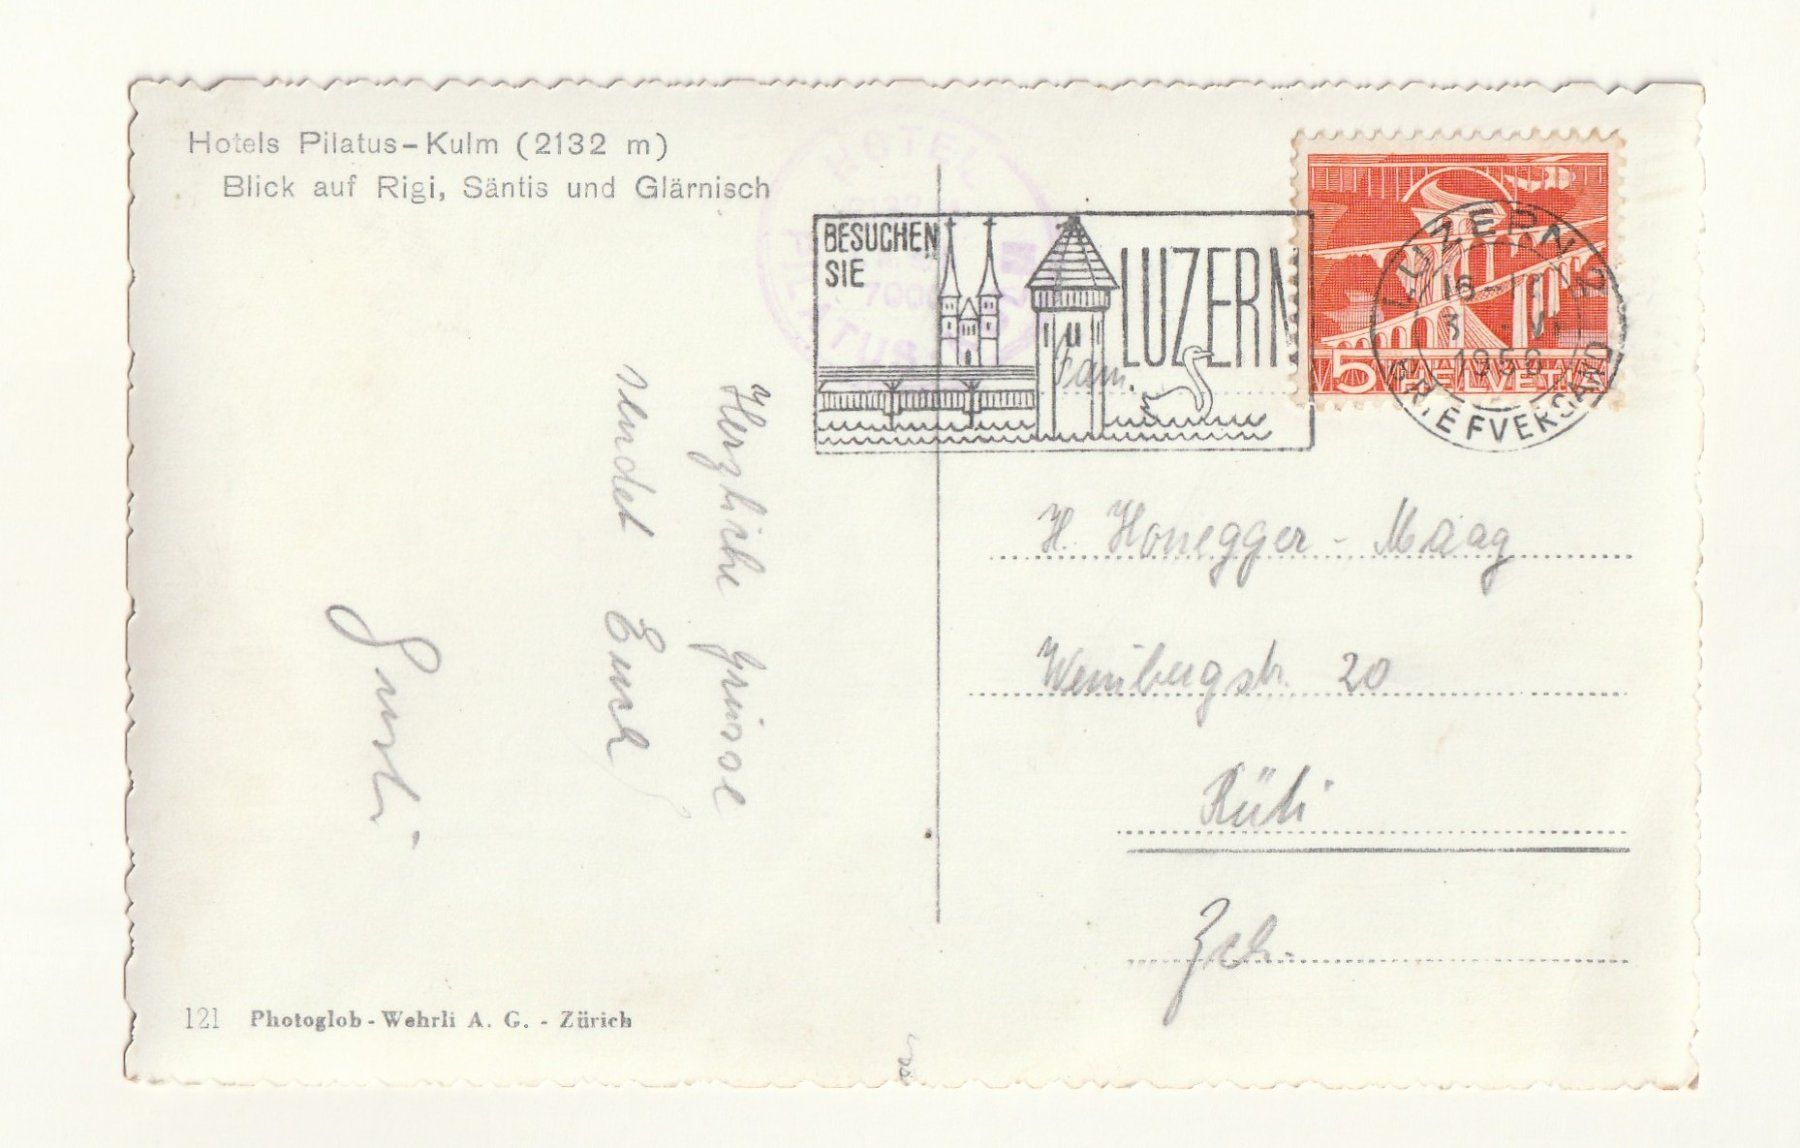 Hotels Pilatus-Kulm (2132 m)
Blick auf Rigi, Säntis und Glärnisch
HOTEL
7000
BESUCHEN
SIE
LUZERN
LUZERN 2
16-
1956
BRIEFVERSAND
5 HELVETIA
Herzliche Grüsse
sendet Euch
Gusti
Fam.
H. Honegger - Maag
Weinbergstr. 20
Rüti
Zch.
121 Photoglob-Wehrli A. G. - Zürich